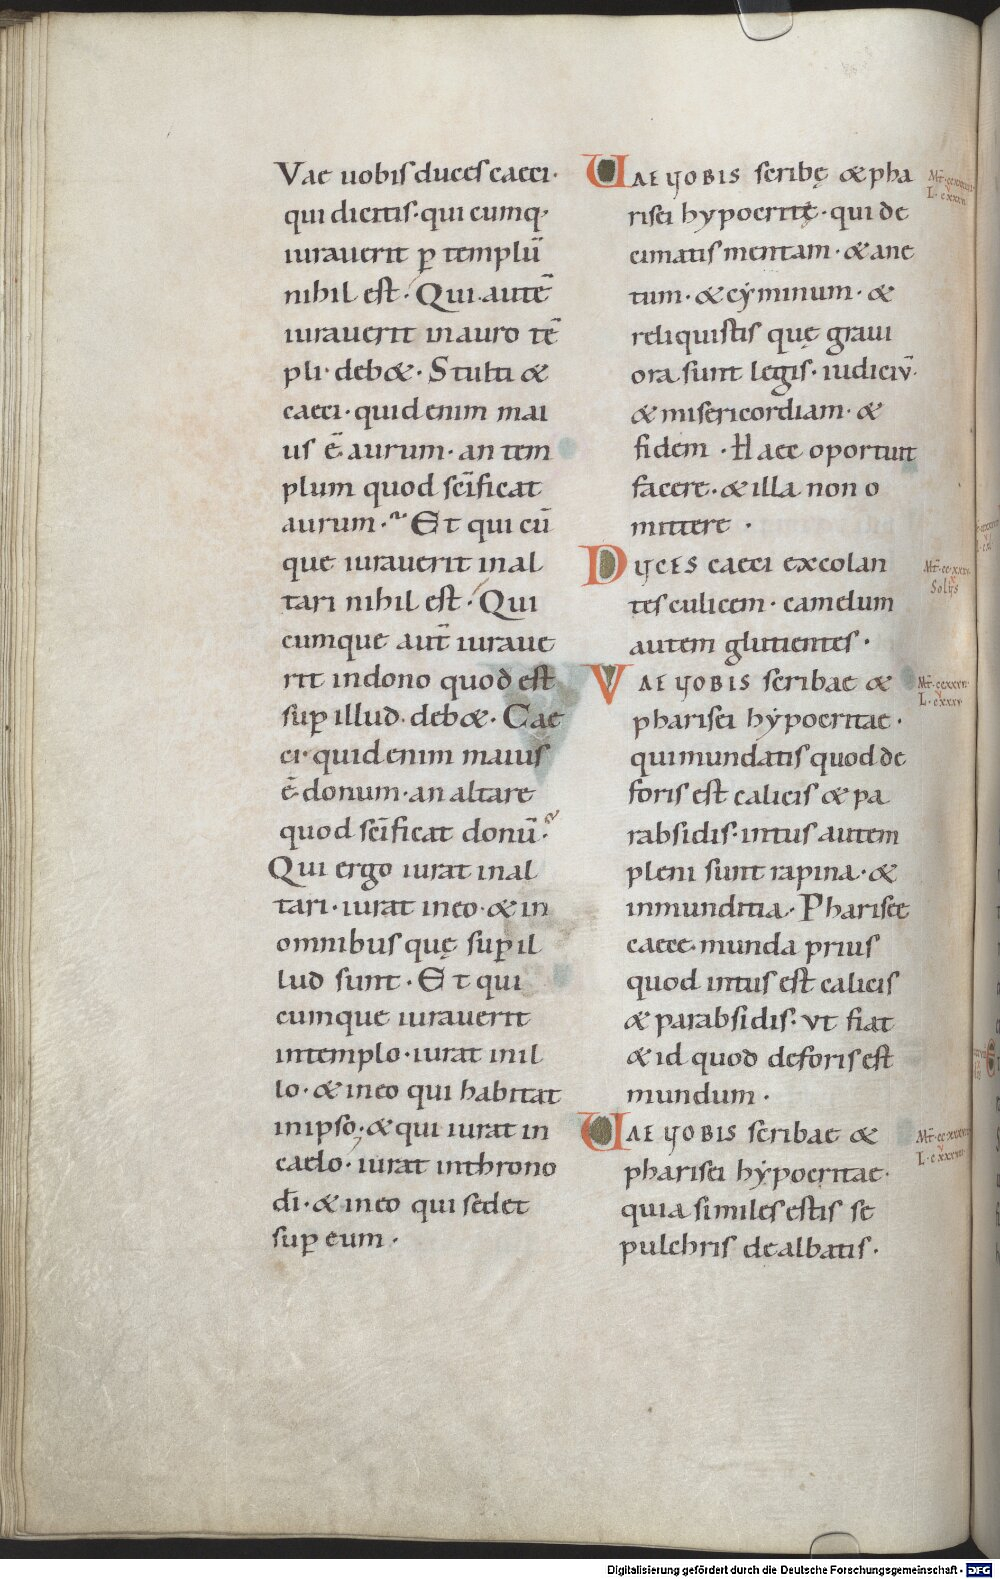 Vae uobis duces caeci·
qui dicitis·qui cumq;
iurauerit p̲ templū
nihil est·Qui autē
iurauerit in auro tē
pli·deb&·Stulti &
caeci·quid enim mai
us ē aurum·an tem
plum quod sc̄ificat
aurum·Et qui cū
que iurauerit in al
tari nihil est·Qui
cumque aut̄ iuraue
rit in dono quod est
sup̲ illud·deb&·Cae
ci·quid enim maius
ē donum·an altare
quod sc̄ificat donū·
Qui ergo iurat in al
tari·iurat in eo·& in
omnibus quę sup̲ il
lud sunt·Et qui
cumque iurauerit
in templo·iurat in il
lo·& in eo qui habitat
in ipso·& qui iurat in
caelo·iurat in throno
d̄i·& in eo qui sedet
sup̲ eum·
UAE UOBIS scribę & pha
risei hypocritę·qui de
cimatis mentam·& ane
tum·& cyminum·&
reliquistis quę graui
ora sunt legis·iudiciū·
& misericordiam·&
fidem·Haec oportuit
facere·& illa non o
mittere·
DUCES caeci excolan
tes culicem·camelum
autem glutientes·
VAE UOBIS scribae &
pharisei hypocritae·
qui mundatis quod de
foris est calicis & pa
rabsidis·intus autem
pleni sunt rapina·&
inmunditia·Pharisee
caece·munda prius
quod intus est calicis
& parabsidis·ut fiat
& id quod deforis est
mundum·
UAE UOBIS scribae &
pharisei hypocritae·
quia similes estis se
pulchris dealbatis·
Solus
Digitalisierung gefördert durch die Deutsche Forschungsgemeinschaft - DFG